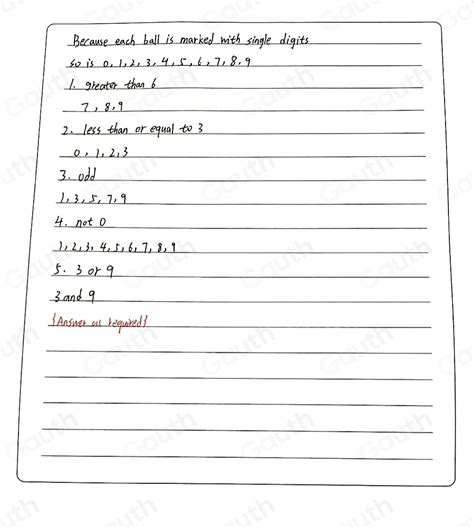 Because each ball is marked with single digits
so is 0,1,2,3,4,5,6,7,8,9
1. greater than 6
7,8,9
2. less than or equal to 3
0,1,2,3
3. odd
1,3,5,7,9
4. not 0
1,2,3,4,5,6,7,8,9
5. 3 or 9
3 and 9
{Answer as required}
Gauth